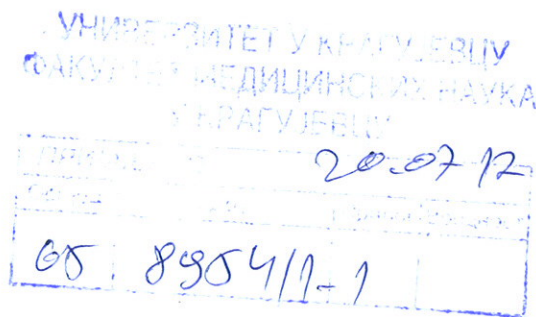 УНИВЕРЗИТЕТ У КРАГУЈЕВЦУ
ФАКУЛТЕТ МЕДИЦИНСКИХ НАУКА
У КРАГУЈЕВЦУ
20.07 12
05 8954/1-1